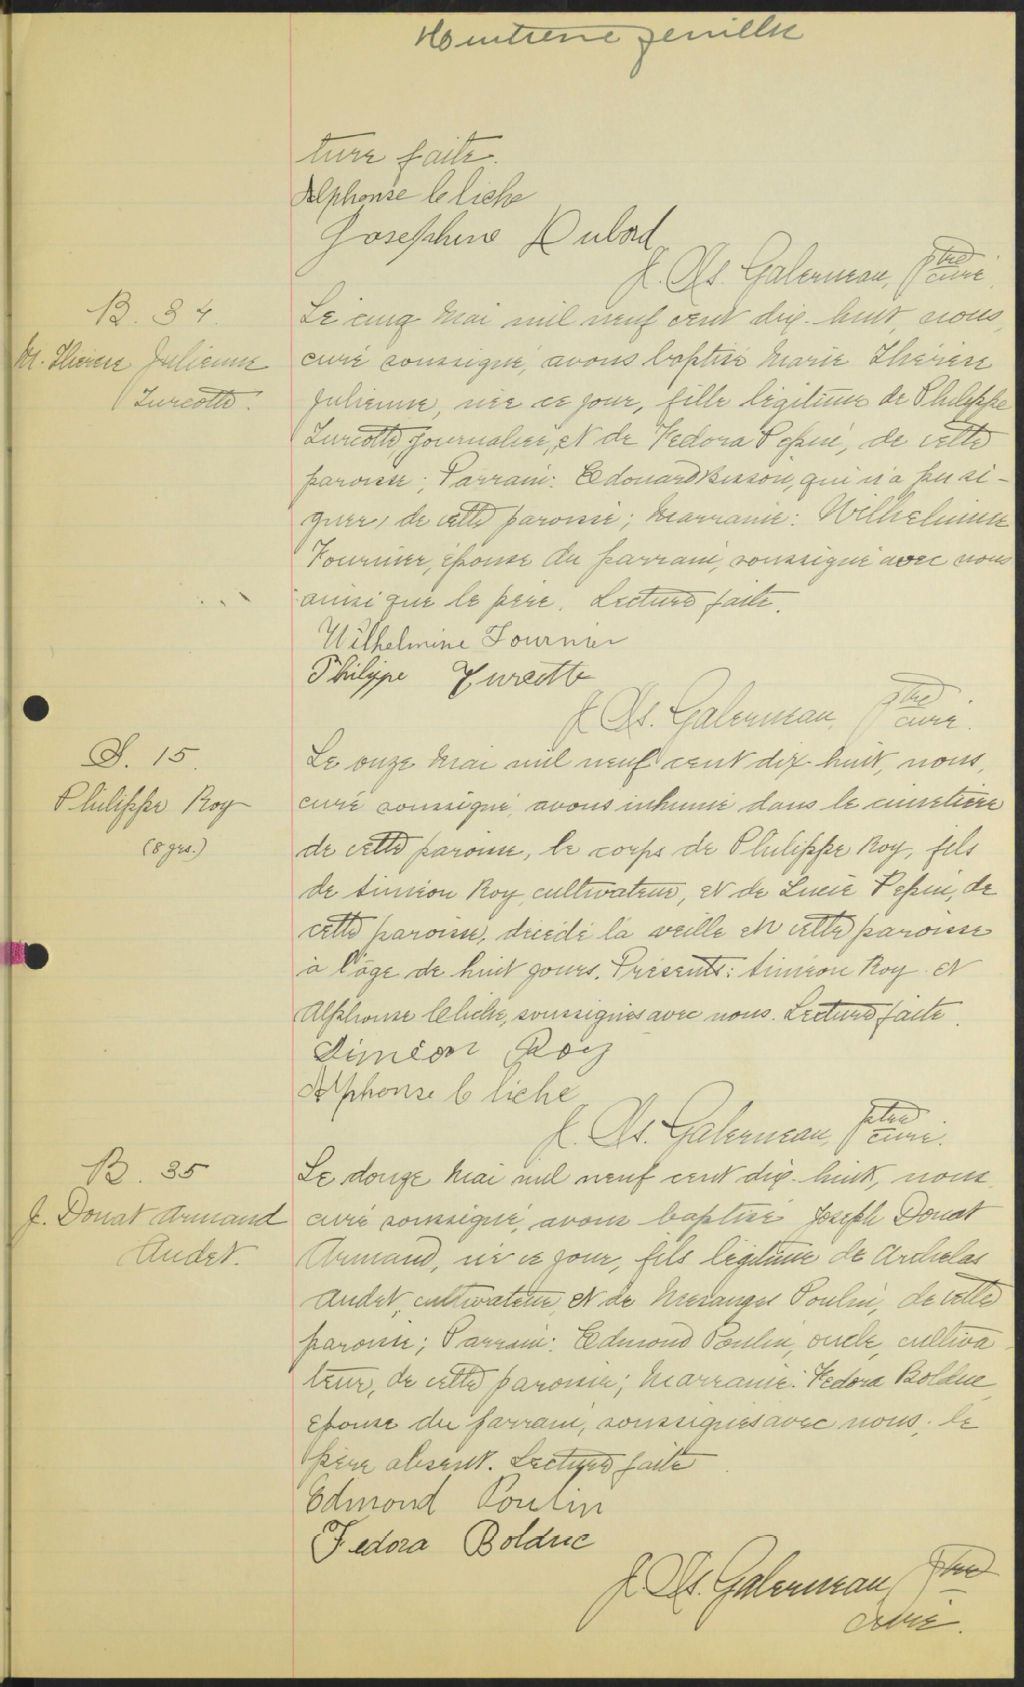 ture faite.
Alphonse
Josephine Dubord
J. Galerneau, ptre curé.
B. 34.
M. Thérèse Julienne
Turcotte.
Le cinq Mai mil neuf cent dix-huit, nous,
curé soussigné, avons baptisé Marie Thérèse
Julienne, née ce jour, fille légitime de Philippe
Turcotte, journalier, et de Fedora Pepin, de cette
paroisse; Parrain: Edouard Bisson, qui n'a pu si-
gner, de cette paroisse; Marraine: Wilhelmine
Fournier, épouse du parrain, soussigné avec nous
ainsi que le père. Lecture faite.
Wilhelmine Fournier
Philippe Turcotte
J. Galerneau, ptre curé.
S. 15.
Philippe Roy
(8 jrs.)
Le onze Mai mil neuf cent dix-huit, nous,
curé soussigné, avons inhumé dans le cimetière
de cette paroisse, le corps de Philippe Roy, fils
de Siméon Roy, cultivateur, et de Lucie Pepin, de
cette paroisse, décédé la veille en cette paroisse
à l'âge de huit jours. Présents: Siméon Roy et
Alphonse, soussignés avec nous. Lecture faite.
Siméon Roy
Alphonse
J. Galerneau, ptre curé.
B. 35
J. Donat Armand
Audet.
Le douze Mai mil neuf cent dix-huit, nous
curé soussigné, avons baptisé Joseph Donat
Armand, né ce jour, fils légitime de Archelas
Audet, cultivateur, et de Poulin, de cette
paroisse; Parrain: Edmond Poulin, oncle, cultiva-
teur, de cette paroisse; Marraine: Fedora Bolduc,
épouse du parrain, soussignés avec nous; le
père absent. Lecture faite
Edmond Poulin
Fedora Bolduc
J. Galerneau, ptre
curé.